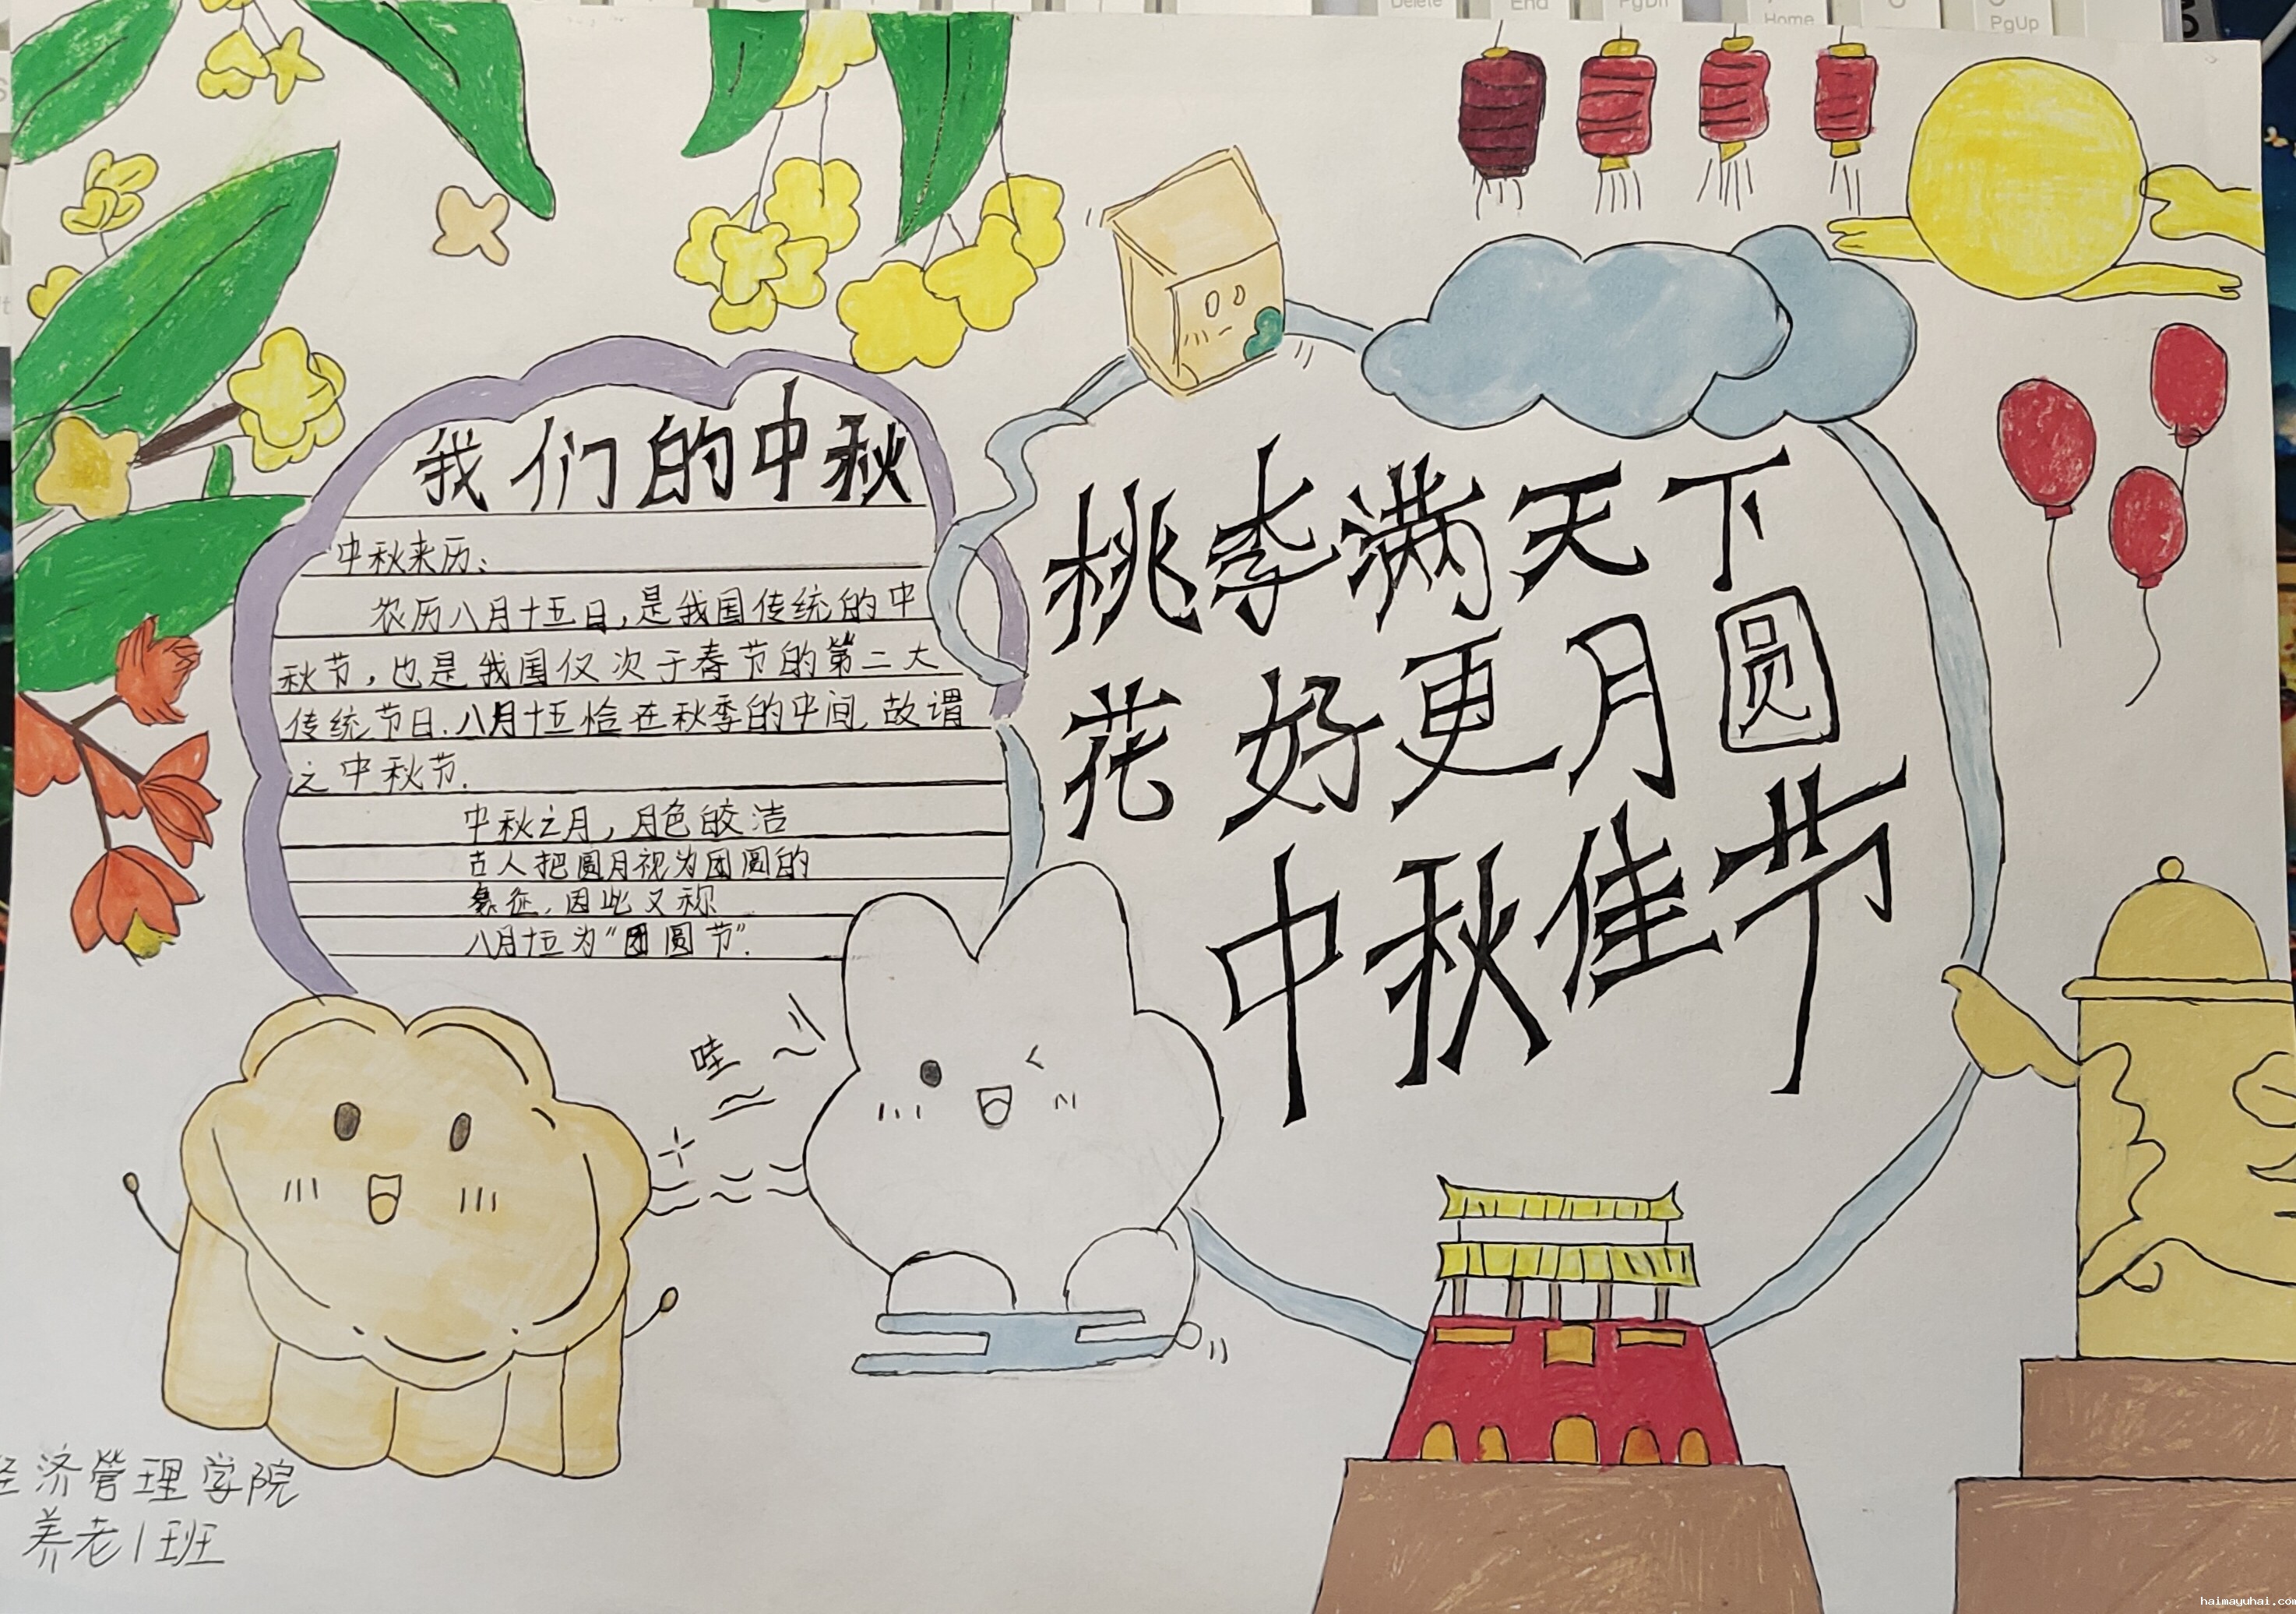 Delete
End
PgDn
Home
PgUp
我们的中秋
中秋来历:
农历八月十五日,是我国传统的中
秋节,也是我国仅次于春节的第二大
传统节日.八月十五恰在秋季的中间,故谓
之中秋节.
中秋之月,月色皎洁
古人把圆月视为团圆的
象征,因此又称
八月十五为“团圆节”.
桃李满天下
花好更月圆
中秋佳节
哇
经济管理学院
养老1班
haimayuhai.co